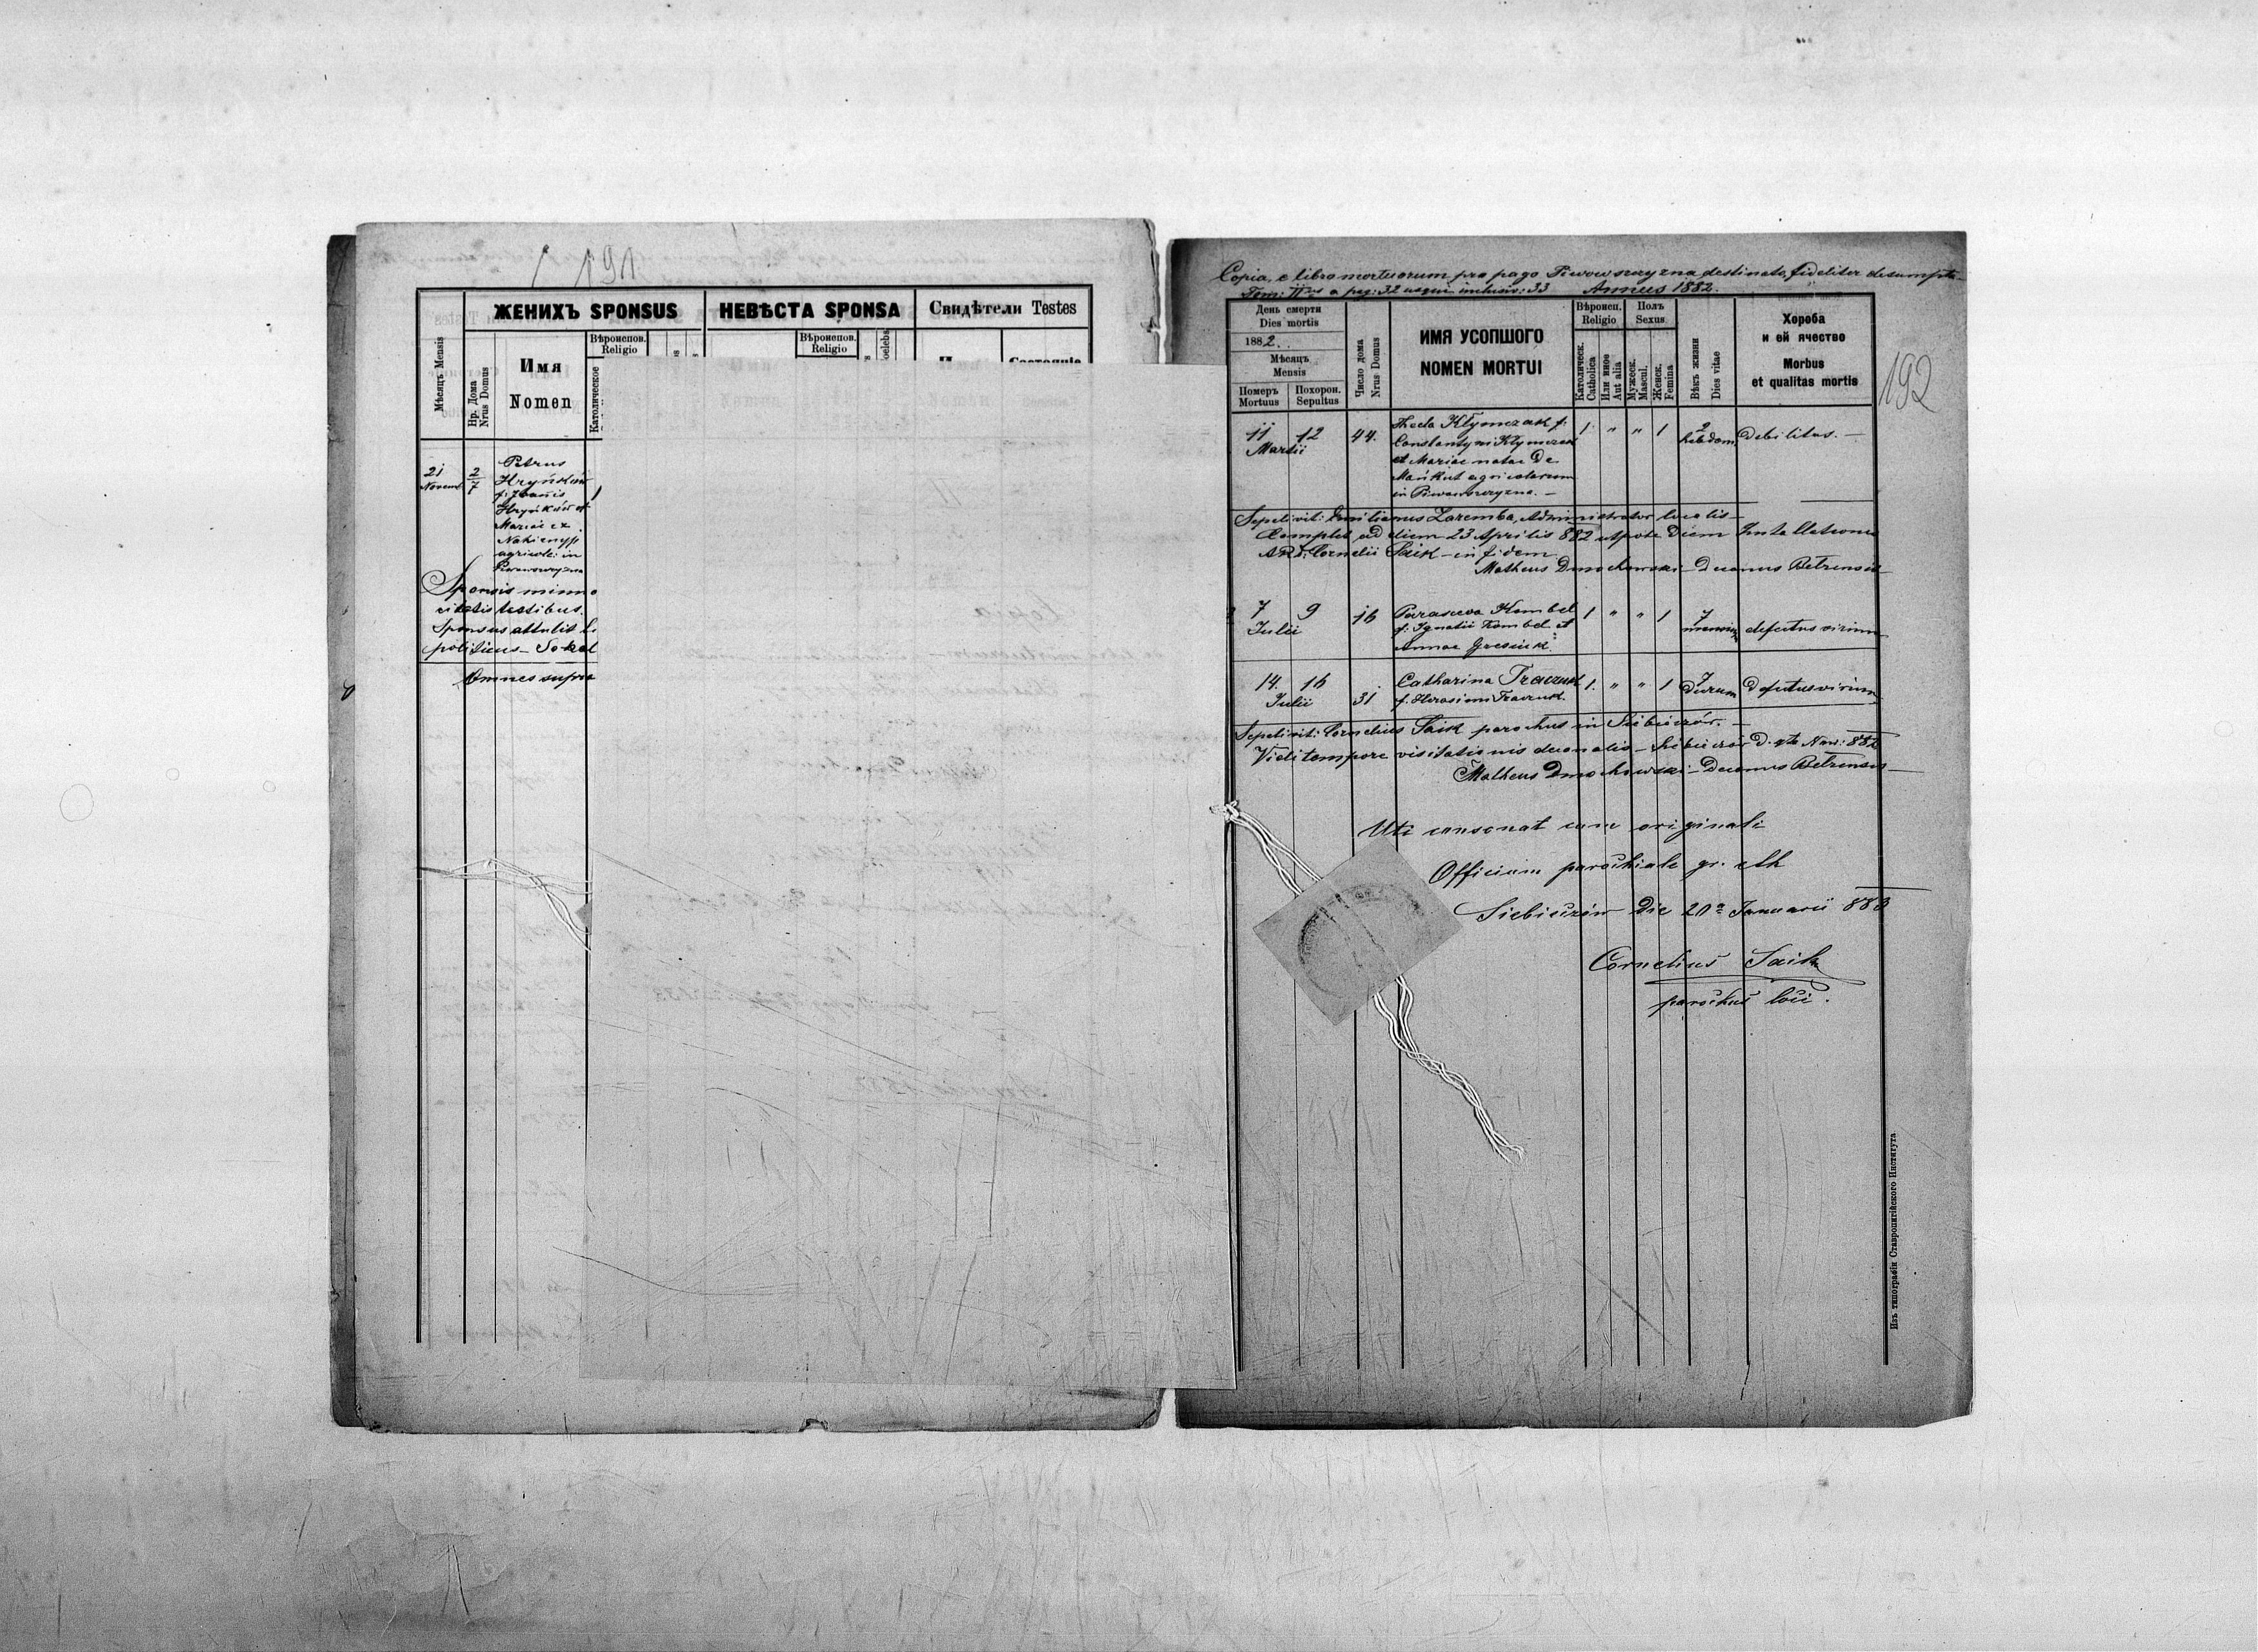 191
ЖЕНИХЪ SPONSUS
НЕВѢСТА SPONSA
Свидѣтели Testes
Мѣсяцъ Mensis
Нр. Дома
Nrus Domus
Имя
Nomen
Вѣроиспов.
Religio
Католическое
Вѣроиспов.
Religio
21
Novemb
2
7
Petrus
Hryńków
f: Joanis
Hryńków et
Mariae ex
agricole: in
Piwowszczyzna
Sponsis
testibus.
Sponsus attulit
politicus – Sokal
Omnes supra
Copia e libro mortuorum pro pago Piwowszczyzna destinato, fideliter desumpta
Tom: II a pag: 32 usque inclusiv: 33 Annus 1882.
День смерти
Dies mortis
1882.
Мѣсяцъ
Mensis
Померъ
Mortuus
Похорон.
Sepultus
Число дома
Nrus Domus
ИМЯ УСОПШОГО
NOMEN MORTUI
Вѣроисп.
Religio
Католическ.
Catholica
Или иное
Aut alia
Полъ
Sexus
Мужеск.
Mascul.
Женск.
Femina
Вѣкъ жизни
Dies vitae
Хороба
и ей ячество
Morbus
et qualitas mortis
192
11 12 44. Thecla Kłymczak f: 1 " " 1 2 hebdom. Debilitas. –
Martii Constantyni Kłymczak
et Mariae natae De
Mańkut agricolarum
in Piwowszczyzna. –
Sepelivit: Emilianus Zaremba, Administrator localis –
ad diem 23 Aprilis 882 utpote Diem Installationis
A R D: Cornelii Saik – in fidem
Matheus Dmochowski – Decanus Belzensis
7 9 16 Parasceva Kombel 1 " " 1 7 defectus virium
Julii f: Ignatii Kombel et
Annae
14. 16 31 Catharina Traczuk 1. " " 1 7 dierum Defectus virium
Julii f. Herasimi Traczuk.
Sepelivit: Cornelius Saik parochus in Siebieczów. –
Vidi tempore visitationis decanalis – Siebieczów
Matheus Dmochowski – Decanus Belzensis –
Uti consonat cum originali
Officium parochiale gr. cth
Siebieczów die 20 Januarii 883
Cornelius Saik
parochus loci.
Изъ типографіи Ставропигійского Института